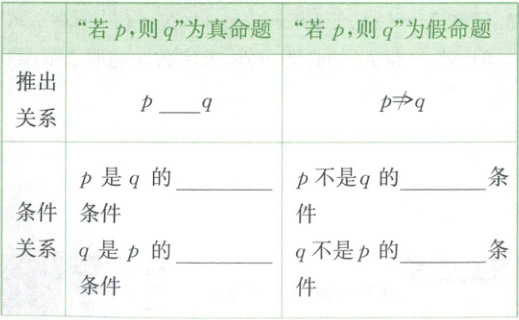 “若 p,则 q”为真命题 “若 p,则 q”为假命题
推出
关系
p ____ q
p⇏q
条件
关系
p 是 q 的 ________
条件
q 是 p 的 ________
条件
p 不是 q 的 ________ 条
件
q 不是 p 的 ________ 条
件